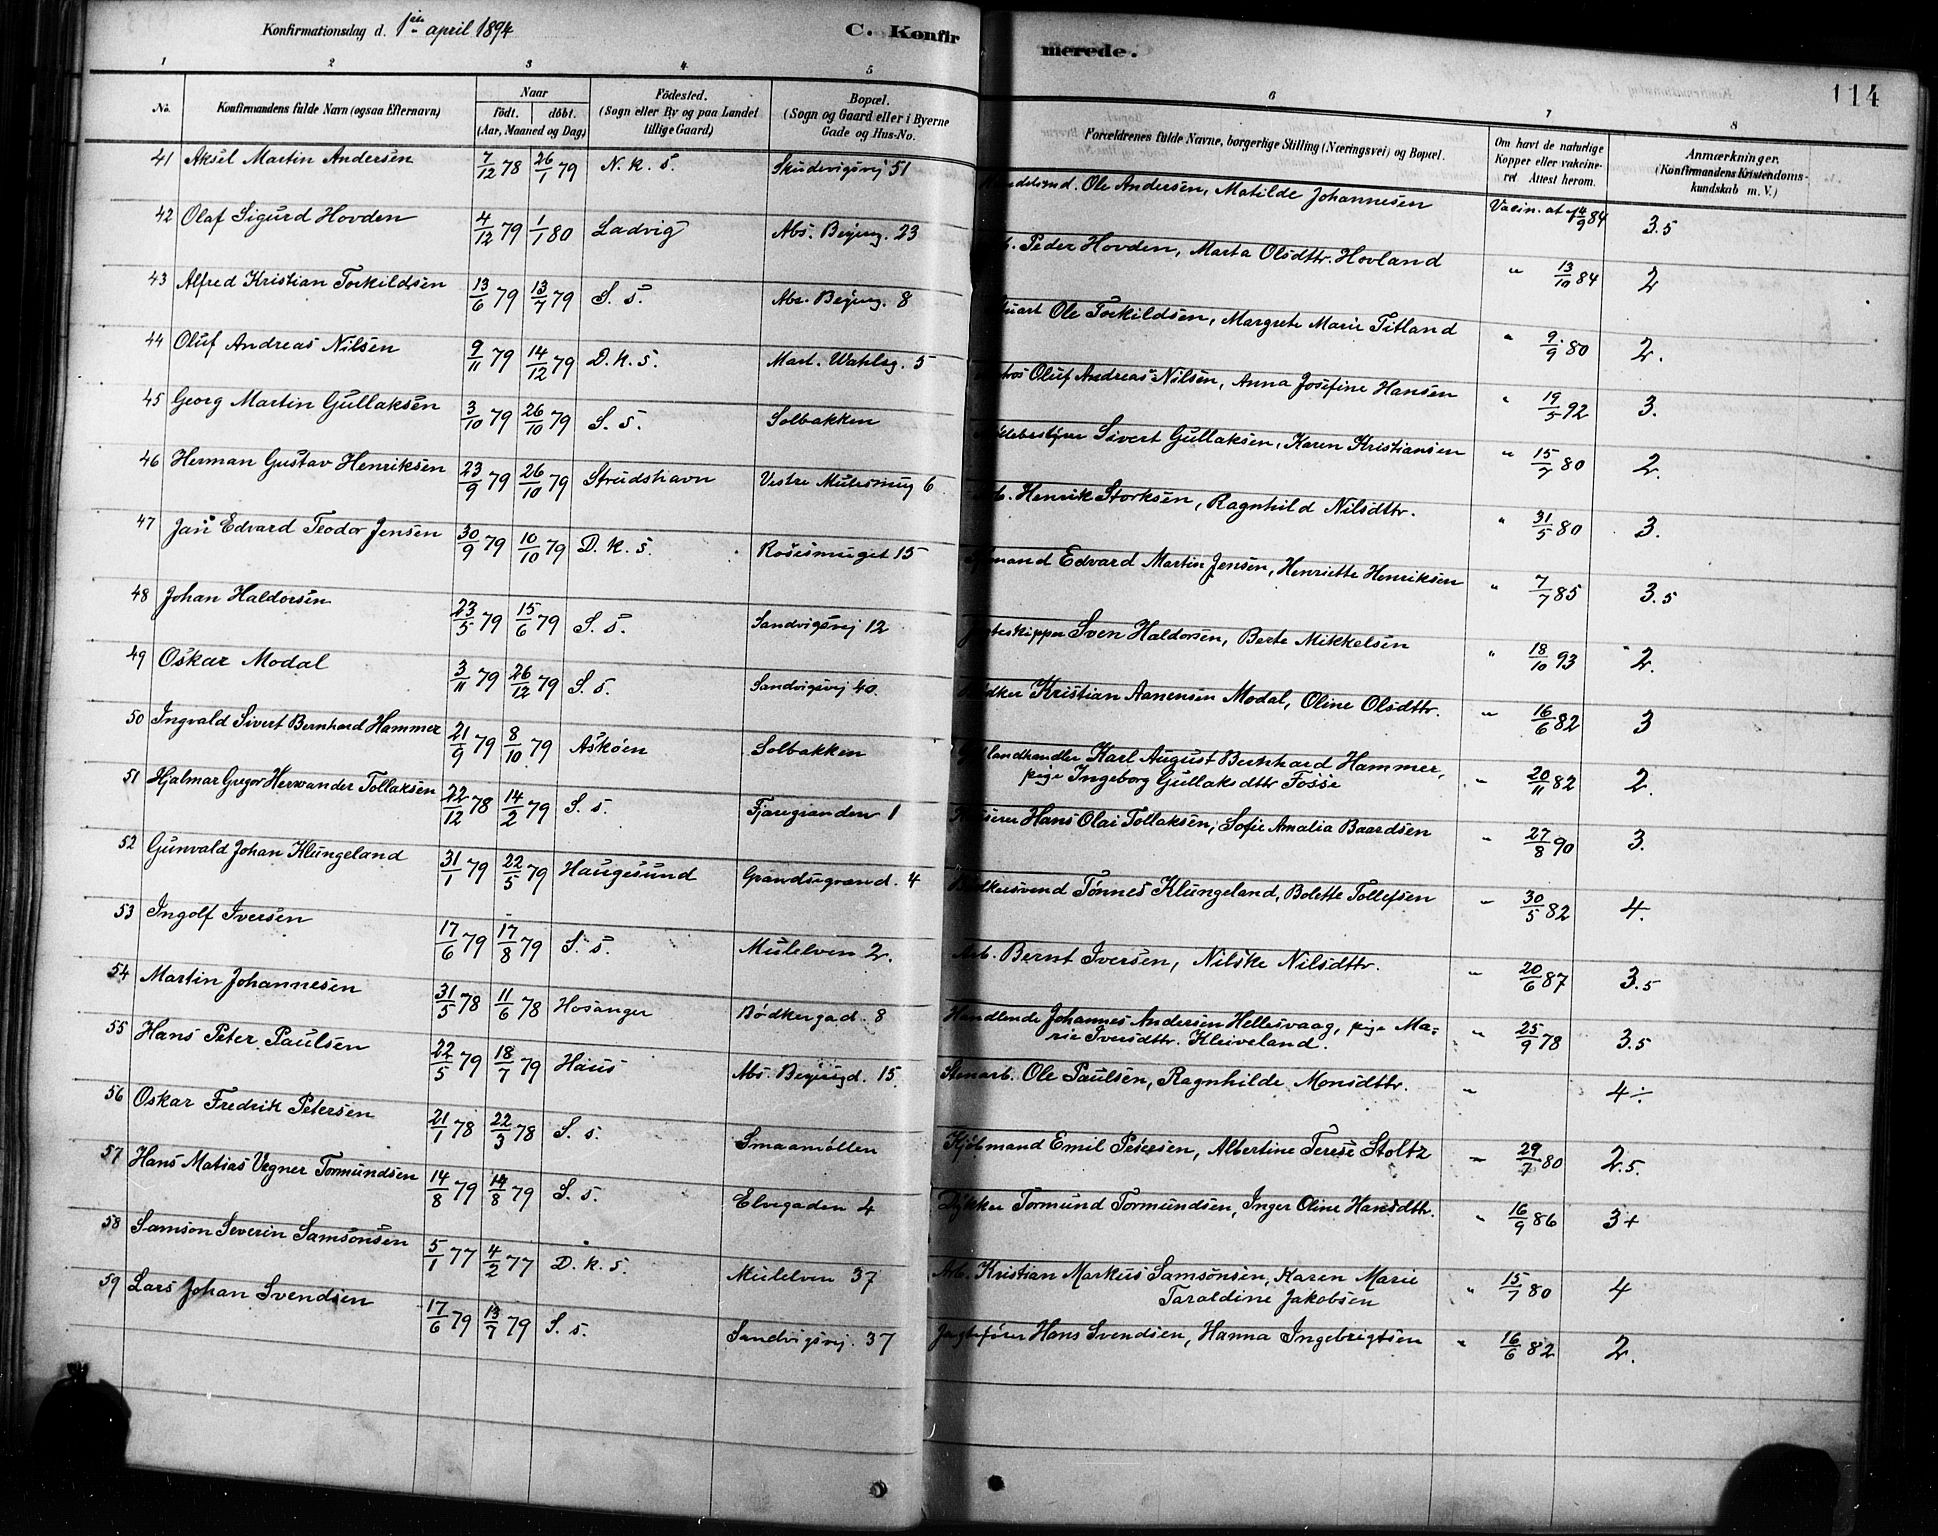 Konfirmationsdag d. 1ste april 1894
C. Konfirmerede.
114
1 2 3 4 5 6 7 8
No. Konfirmandens fulde Navn (ogsaa Efternavn) Naar födt. döbt. (Aar, Maaned og Dag) Födested. (Sogn eller By og paa Landet tillige Gaard) Bopæl. (Sogn og Gaard eller i Byerne Gade og Hus-No. Forældrenes fulde Navne, borgerlige Stilling (Næringsvei) og Bopæl. Om havt de naturlige Kopper eller vakcineret Attest herom. Anmærkninger, (Konfirmandens Kristendomskundskab m. V.)
41 Aksel Martin Andersen 7/12 78 26/1 79 N. k. s. Skudevigsvej 51 Ole Andersen, Matilde Johannesen Vacin. at. 4/9 84 3.5
42 Olaf Sigurd Hovden 4/12 79 1/1 80 Ladvig Abs. Beyerg. 23 Peder Hovden, Marta Olsdttr. Hovland " 13/10 84 2
43 Alfred Kristian Torkildsen 13/6 79 13/7 79 S. s. Abs. Beyerg. 8 Ole Torkildsen, Margrete Marie Titland " 9/9 80 2.
44 Oluf Andreas Nilsen 9/11 79 14/12 79 D. k. s. Mart. Wahlsg. 5 Oluf Andreas Nilsen, Anna Josefine Hansen " 19/5 92 3.
45 Georg Martin Gullaksen 3/10 79 26/10 79 S. s. Solbakken Sivert Gullaksen, Karen Kristiansen " 15/7 80 2.
46 Herman Gustav Henriksen 23/9 79 26/10 79 Strudshavn Vestre Mulesmug 6 Henrik Storksen, Ragnhild Nilsdttr. " 31/5 80 3.
47 Jan Edvard Teodor Jensen 30/9 79 10/10 79 D. k. s. Rosesmuget 15 Edvard Martin Jensen, Henriette Henriksen " 7/7 85 3.5
48 Johan Haldorsen 23/5 79 15/6 79 S. s. Sandvigsvej 12 Sven Haldorsen, Berte Mikkelsen " 18/10 93 2.
49 Oskar Modal 3/11 79 26/12 79 S. s. Sandvigsvej 40. Kristian Aanensen Modal, Oline Olsdttr. " 16/6 82 3
50 Ingvald Sivert Bernhard Hammer 21/9 79 8/10 79 Askøen Solbakken Karl August Bernhard Hammer,
pige Ingeborg Gullaksdttr Fosse " 20/11 82 2.
51 Hjalmar Gregor Herwander Tollaksen 22/12 78 14/2 79 S. s. Fjæregranden 1 Hans Olai Tollaksen, Sofie Amalia Baardsen " 27/8 90 3.
52 Gunvald Johan Klungeland 31/1 79 22/5 79 Haugesund 4 Bødkersvend Tønnes Klungeland, Bolette Tollefsen " 30/5 82 4.
53 Ingolf Iversen 17/6 79 17/8 79 S. s. Mulelven 2. Arb. Bernt Iversen, Nilske Nilsdttr. " 20/6 87 3.5
54 Martin Johannesen 31/5 78 11/6 78 Hosanger Bødkergad. 8 Handlende Johannes Andersen Hellesvaag, pige Ma-
rie Iversdttr. Kleiveland. " 25/9 78 3.5
55 Hans Peter Paulsen 22/5 79 18/7 79 Haus Abs. Beyergd. 15. Stenarb. Ole Paulsen, Ragnhilde Monsdttr. " 4÷
56 Oskar Fredrik Petersen 21/1 78 22/3 78 S. s. Smaamøllen Kjøbmand Emil Petersen, Albertine Terese Stoltz " 29/7 80 2.5.
57 Hans Matias Vegner Tormundsen 14/8 79 14/8 79 S. s. Elvegaden 4 Dykker Tormund Tormundsen, Inger Oline Hansdttr. " 16/9 86 3+
58 Samson Severin Samsonsen 5/1 77 4/2 77 D. k. s. Mulelven 37 Arb. Kristian Markus Samsonsen, Karen Marie
Taraldine Jakobsen " 15/7 80 4
59 Lars Johan Svendsen 17/6 79 13/7 79 S. s. Sandvigsvej. 37 Jagtefører Hans Svendsen, Hanna Ingebrigtsen " 16/6 82 2.